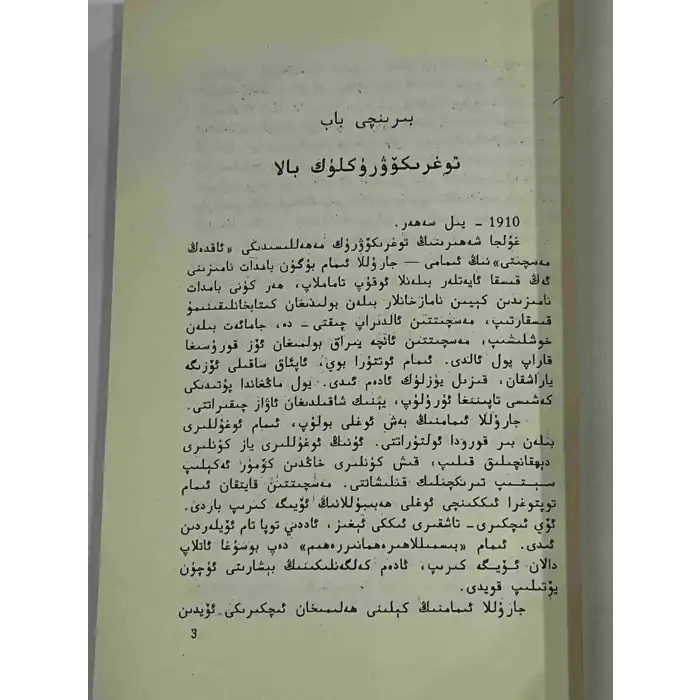 بىرىنچى باب
توغرىكۆۋرۈكلۈك بالا
1910 - يىل سەھەر.
غۇلجا شەھىرىنىڭ توغرىكۆۋرۈك مەھەللىسىدىكى «ئاقدەڭ
مەسچىتى» نىڭ ئىمامى — جارۇللا ئىمام بۈگۈن بامدات نامىزىنى
ئەڭ قىسقا ئايەتلەر بىلەنلا ئوقۇپ تاماملاپ، ھەر كۈنى بامدات
نامىزىدىن كېيىن نامازخانلار بىلەن بولىدىغان كىتابخانلىقىنىمۇ
قىسقارتىپ، مەسچىتتىن ئالدىراپ چىقتى - دە، جامائەت بىلەن
خوشلىشىپ، مەسچىتتىن ئانچە يىراق بولمىغان ئۆز قورۇسىغا
قاراپ يول ئالدى. ئىمام ئوتتۇرا بوي، ئاپئاق ساقىلى ئۆزىگە
ياراشقان، قىزىل يۈزلۈك ئادەم ئىدى. يول ماڭغاندا پۇتىدىكى
كەشىسى تاپىنىغا ئۇرۇلۇپ، يېنىك شاقىلدىغان ئاۋاز چىقىراتتى.
جارۇللا ئىمامنىڭ بەش ئوغلى بولۇپ، ئىمام ئوغۇللىرى
بىلەن بىر قورودا ئولتۇراتتى. ئۇنىڭ ئوغۇللىرى ياز كۈنلىرى
دېھقانچىلىق قىلىپ، قىش كۈنلىرى خاڭدىن كۆمۈر ئەكېلىپ
سېتىپ تىرىكچىلىك قىلىشاتتى. مەسچىتتىن قايتقان ئىمام
توپتوغرا ئىككىنچى ئوغلى ھەبىبۇللانىڭ ئۆيىگە كىرىپ باردى.
ئۆي ئىچكىرى - تاشقىرى ئىككى ئېغىز، ئاددىي توپا تام ئۆيلەردىن
ئىدى. ئىمام «بىسمىللاھىرەھمانىررەھىم» دەپ بوسۇغا ئاتلاپ
دالان ئۆيگە كىرىپ، ئادەم كەلگەنلىكىنىڭ بىشارىتى ئۈچۈن
يۆتىلىپ قويدى.
جارۇللا ئىمامنىڭ كېلىنى ھەلىمىخان ئىچكىرىكى ئۆيدىن
3